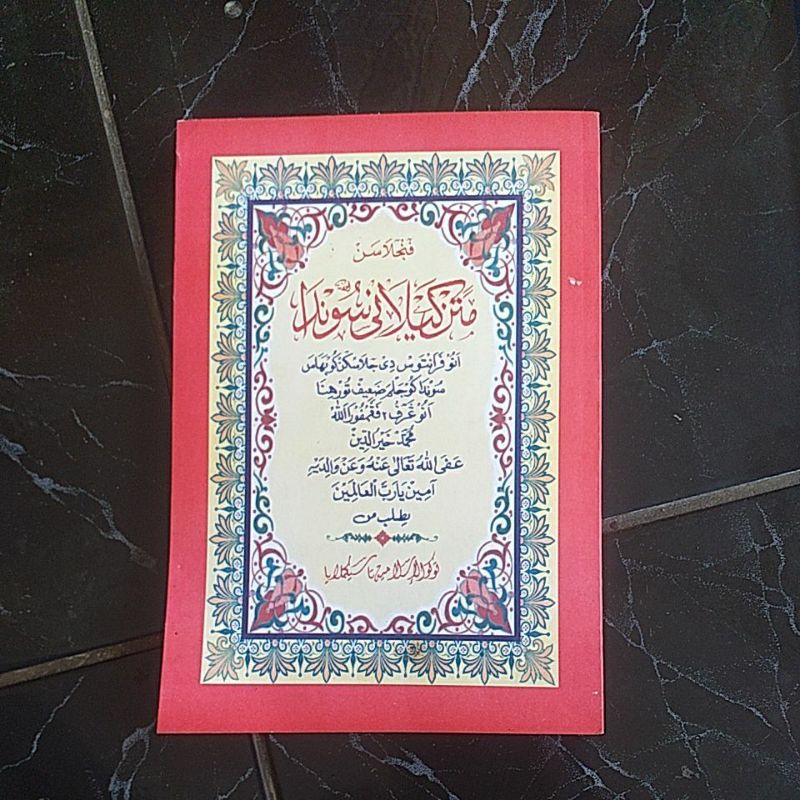 فنجلاسن
متن كيلاني سوندا
انو فرانتوس دي جلاسكن كو بهاس
سوندا كو جلم ضعيف تور هينا
انو غرف٢ فڠمفورا الله
محمد خير الدين
عفى الله تعالى عنه وعن والديه
آمين يارب العالمين
يطلب من
توكو الإسلامية تاسيكملايا